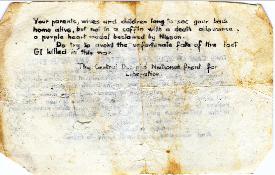 Your parents, wives and children long to see your back
home alive, but not in a coffin with a death allowance,
a purple heart medal bestowed by Nixon.
Do try to avoid the unfortunate fate of the last
GI killed in this war.
The Central National Front for
Liberation.